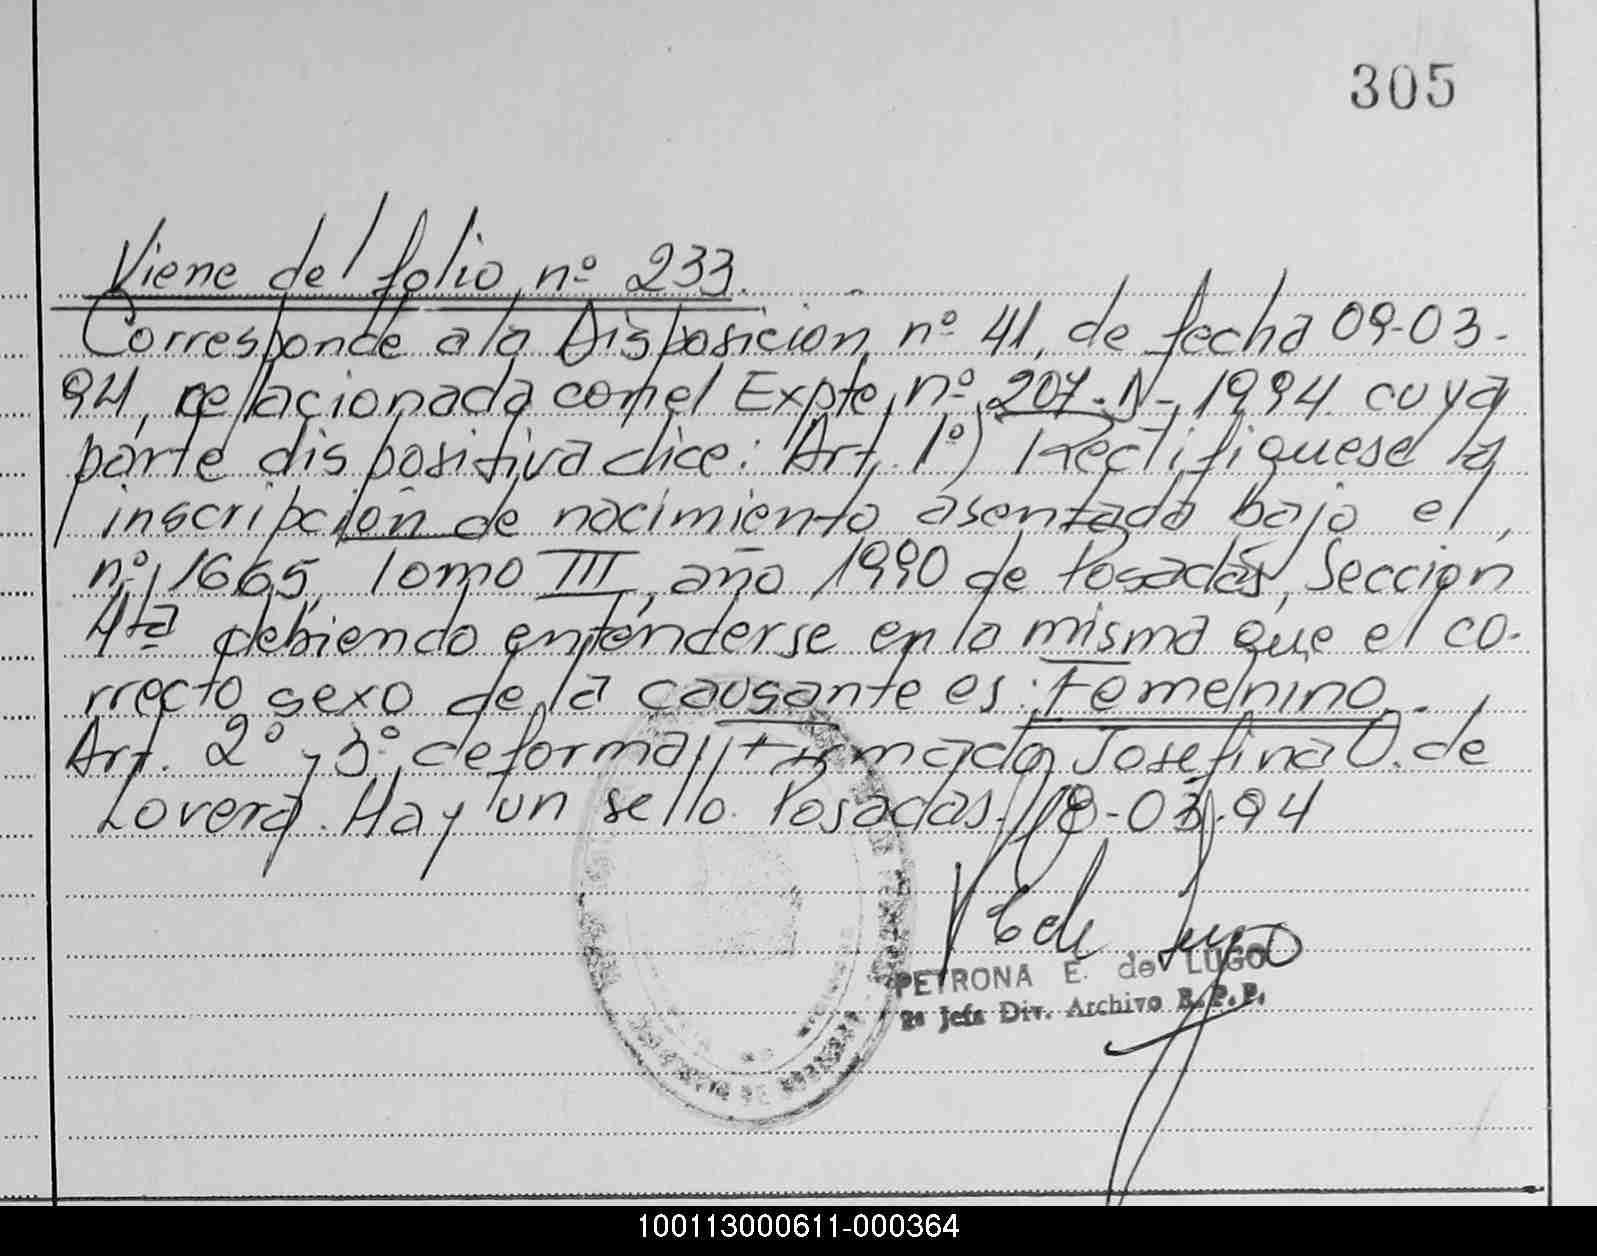 305
Viene del folio nº 233.
Corresponde a la Disposicion nº 41, de fecha 09-03-
94, relacionada con el Expte, nº 207-N-1994 cuya
parte dispositiva dice: Art. 1º) Rectifiquese la
inscripción de nacimiento asentada bajo el
nº 1665, Tomo III, año 1990 de Posadas, Sección
4ta debiendo entenderse en la misma que el co-
rrecto sexo de la causante es: Femenino.
Art. 2º y 3º de forma, firmado Josefina O. de
Lovera. Hay un sello. Posadas. 18-03-94
PETRONA E. de LUGO
2ª Jefa Div. Archivo R.P.P.
100113000611-000364